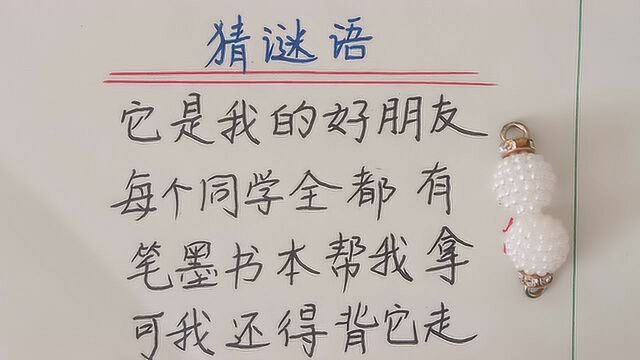 猜谜语
它是我的好朋友
每个同学全都有
笔墨书本帮我拿
可我还得背它走